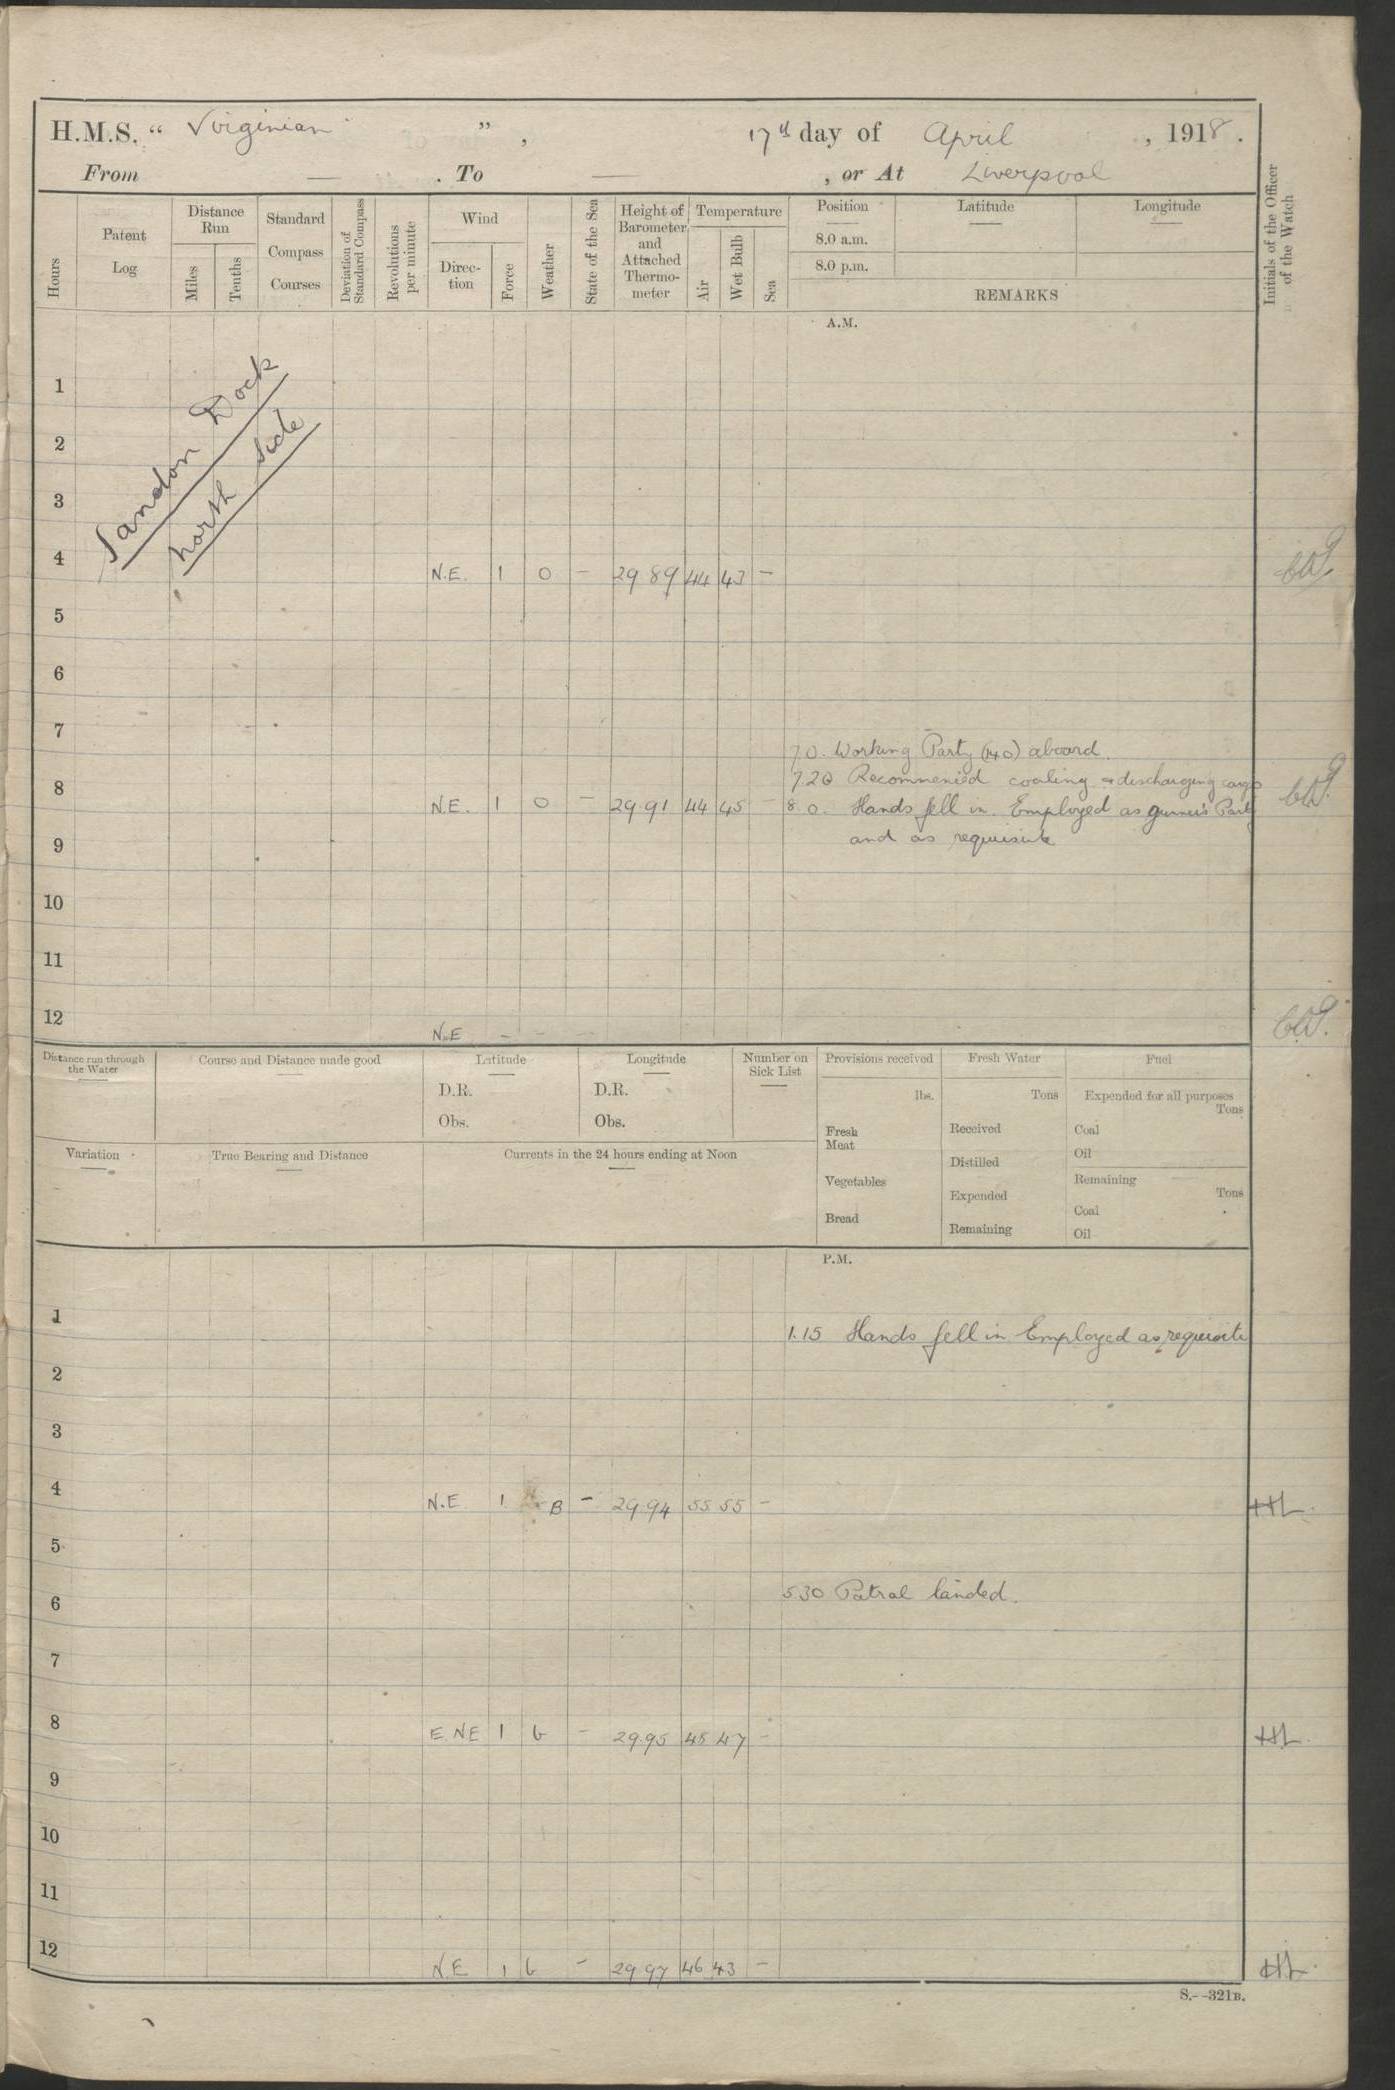 H.M.S. “ Virginian ”, 17th day of April, 1918.
From — . To — , or At Liverpool
Hours
Patent Log
Distance Run
Miles
Tenths
Standard Compass Courses
Deviation of Standard Compass
Revolutions per minute
Wind
Direc-tion
Force
Weather
State of the Sea
Height of Barometer and Attached Thermo-meter
Temperature
Air
Wet Bulb
Sea
Position
8.0 a.m.
8.0 p.m.
Latitude
Longitude
REMARKS
Initials of the Officer of the Watch
A.M.
Sandon Dock
North Side
1
2
3
4 N.E. 1 O - 29 89 44 43 -
5
6
7
7.0. Working Party (140) aboard.
7.20 Recommenied coaling & discharging cargo
8 N.E. 1 O - 29.91 44 45 - 8.0. Hands fell in. Employed as gunner's Party
and as requisite
9
10
11
12 N.E - - -
Distance run through the Water
Course and Distance made good
Latitude
D.R.
Obs.
Longitude
D.R.
Obs.
Number on Sick List
Provisions received
lbs.
Fresh Meat
Vegetables
Bread
Fresh Water
Tons
Received
Distilled
Expended
Remaining
Fuel
Expended for all purposes
Tons
Coal
Oil
Remaining
Tons
Coal
Oil
Variation
True Bearing and Distance
Currents in the 24 hours ending at Noon
P.M.
1
1.15 Hands fell in Employed as requisite
2
3
4 N.E 1 B - 29.94 55 55 - HL.
5
5.30 Patrol landed.
6
7
8 E NE 1 b - 29.95 45 47 - HL.
9
10
11
12 N.E 1 b - 29 97 46 43 - HL.
S.--321B.